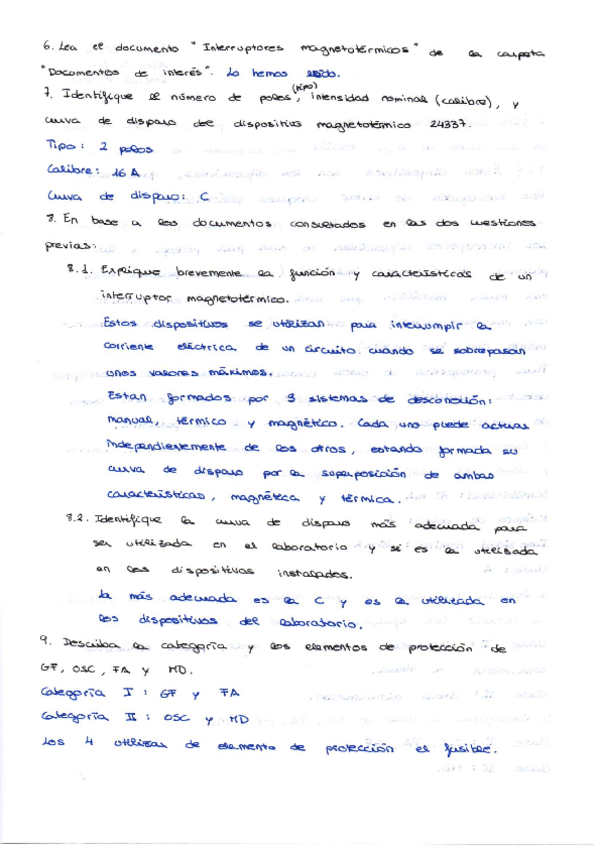 6. Lea el documento "Interruptores magnetotérmicos" de la carpeta
"Documentos de interés". Lo hemos leído.
7. Identifique el número de polos (tipo), intensidad nominal (calibre), y
curva de disparo del dispositivo magnetotérmico 24337.
Tipo: 2 polos
Calibre: 16 A
Curva de disparo: C
8. En base a los documentos consultados en las dos cuestiones
previas:
8.1. Explique brevemente la función y características de un
interruptor magnetotérmico.
Estos dispositivos se utilizan para interrumpir la
corriente eléctrica de un circuito cuando se sobrepasan
unos valores máximos.
Estan formados por 3 sistemas de desconexión:
manual, térmico y magnético. Cada uno puede actuar
independientemente de los otros, estando formada su
curva de disparo por la superposición de ambas
características, magnética y térmica.
8.2. Identifique la curva de disparo más adecuada para
ser utilizada en el laboratorio y si es la utilizada
en los dispositivos instalados.
La más adecuada es la C y es la utilizada en
los dispositivos del laboratorio.
9. Describa la categoría y los elementos de protección de
GF, OSC, FA y MD.
Categoría I : GF y FA
Categoría II : OSC y MD
Los 4 utilizan de elemento de protección el fusible.